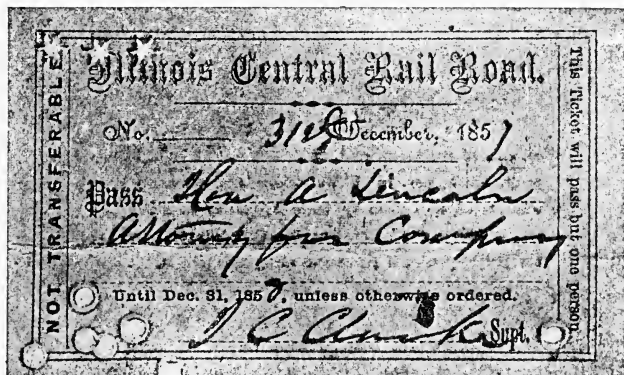 NOT TRANSFERABLE
Illinois Central Rail Road.
No. 31st December, 1857
Pass Hon A Lincoln
Attorney for Company
Until Dec. 31, 1858, unless otherwise ordered.
J C Clark Supt.
This Ticket will pass but one person.